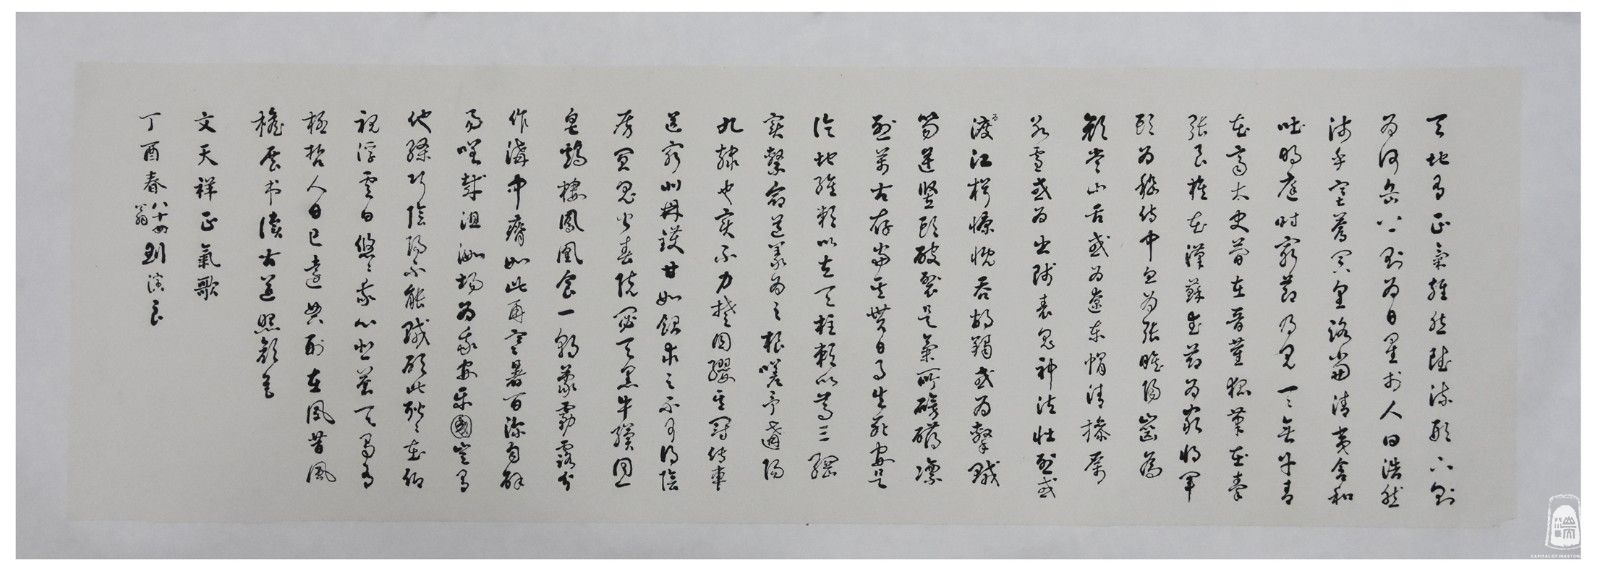 天地有正氣雜然賦流形下則
為河岳上則為日星於人曰浩然
沛乎塞蒼冥皇路當清夷含和
吐明庭時窮節乃見一一垂丹青
在齊太史簡在晉董狐筆在秦
張良椎在漢蘇武節為嚴將軍
頭為嵇侍中血為張睢陽齒為
顏常山舌或為遼東帽清操厲
冰雪或為出師表鬼神泣壯烈或
為渡江楫慷慨吞胡羯或為擊賊
笏逆豎頭破裂是氣所磅礴凜
烈萬古存當其貫日月生死安足
論地維賴以立天柱賴以尊三綱
實繫命道義為之根嗟予遘陽
九隸也實不力楚囚纓其冠傳車
送窮北鼎鑊甘如飴求之不可得陰
房鬼火春院閟天黑牛驥同一
皂鷄棲鳳凰食一朝蒙霧露分
作溝中瘠如此再寒暑百沴自辟
易嗟哉沮洳場為我安樂國豈有
他繆巧陰陽不能賊顧此耿耿在仰
視浮雲白悠悠我心悲蒼天曷有
極哲人日已遠典刑在夙昔風
檐展书讀古道照顏色
文天祥正氣歌
丁酉春八十四翁劉演良
端
CAPITAL OF INKSTONE